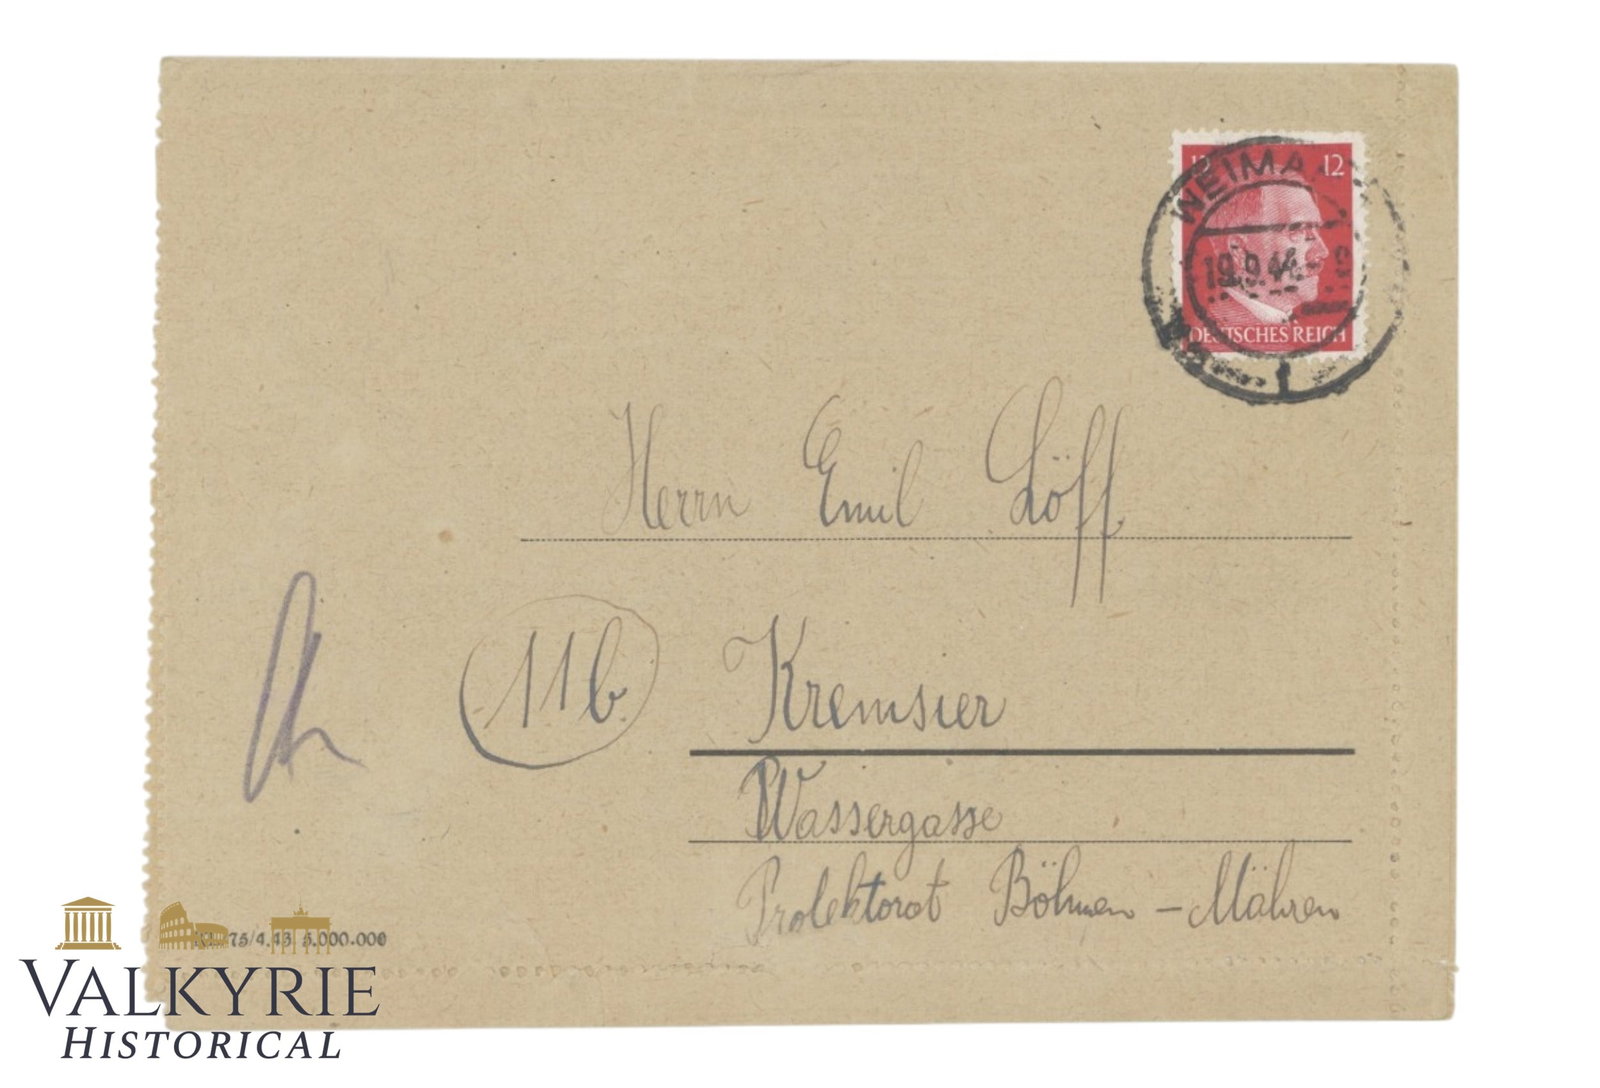 12 12
WEIMAR
19.9.44.-9
DEUTSCHES REICH
Herrn Emil Löff
11b.
Kremsier
Wassergasse
Protektorat Böhmen - Mähren
75/4.43 5.000.000
VALKYRIE
HISTORICAL